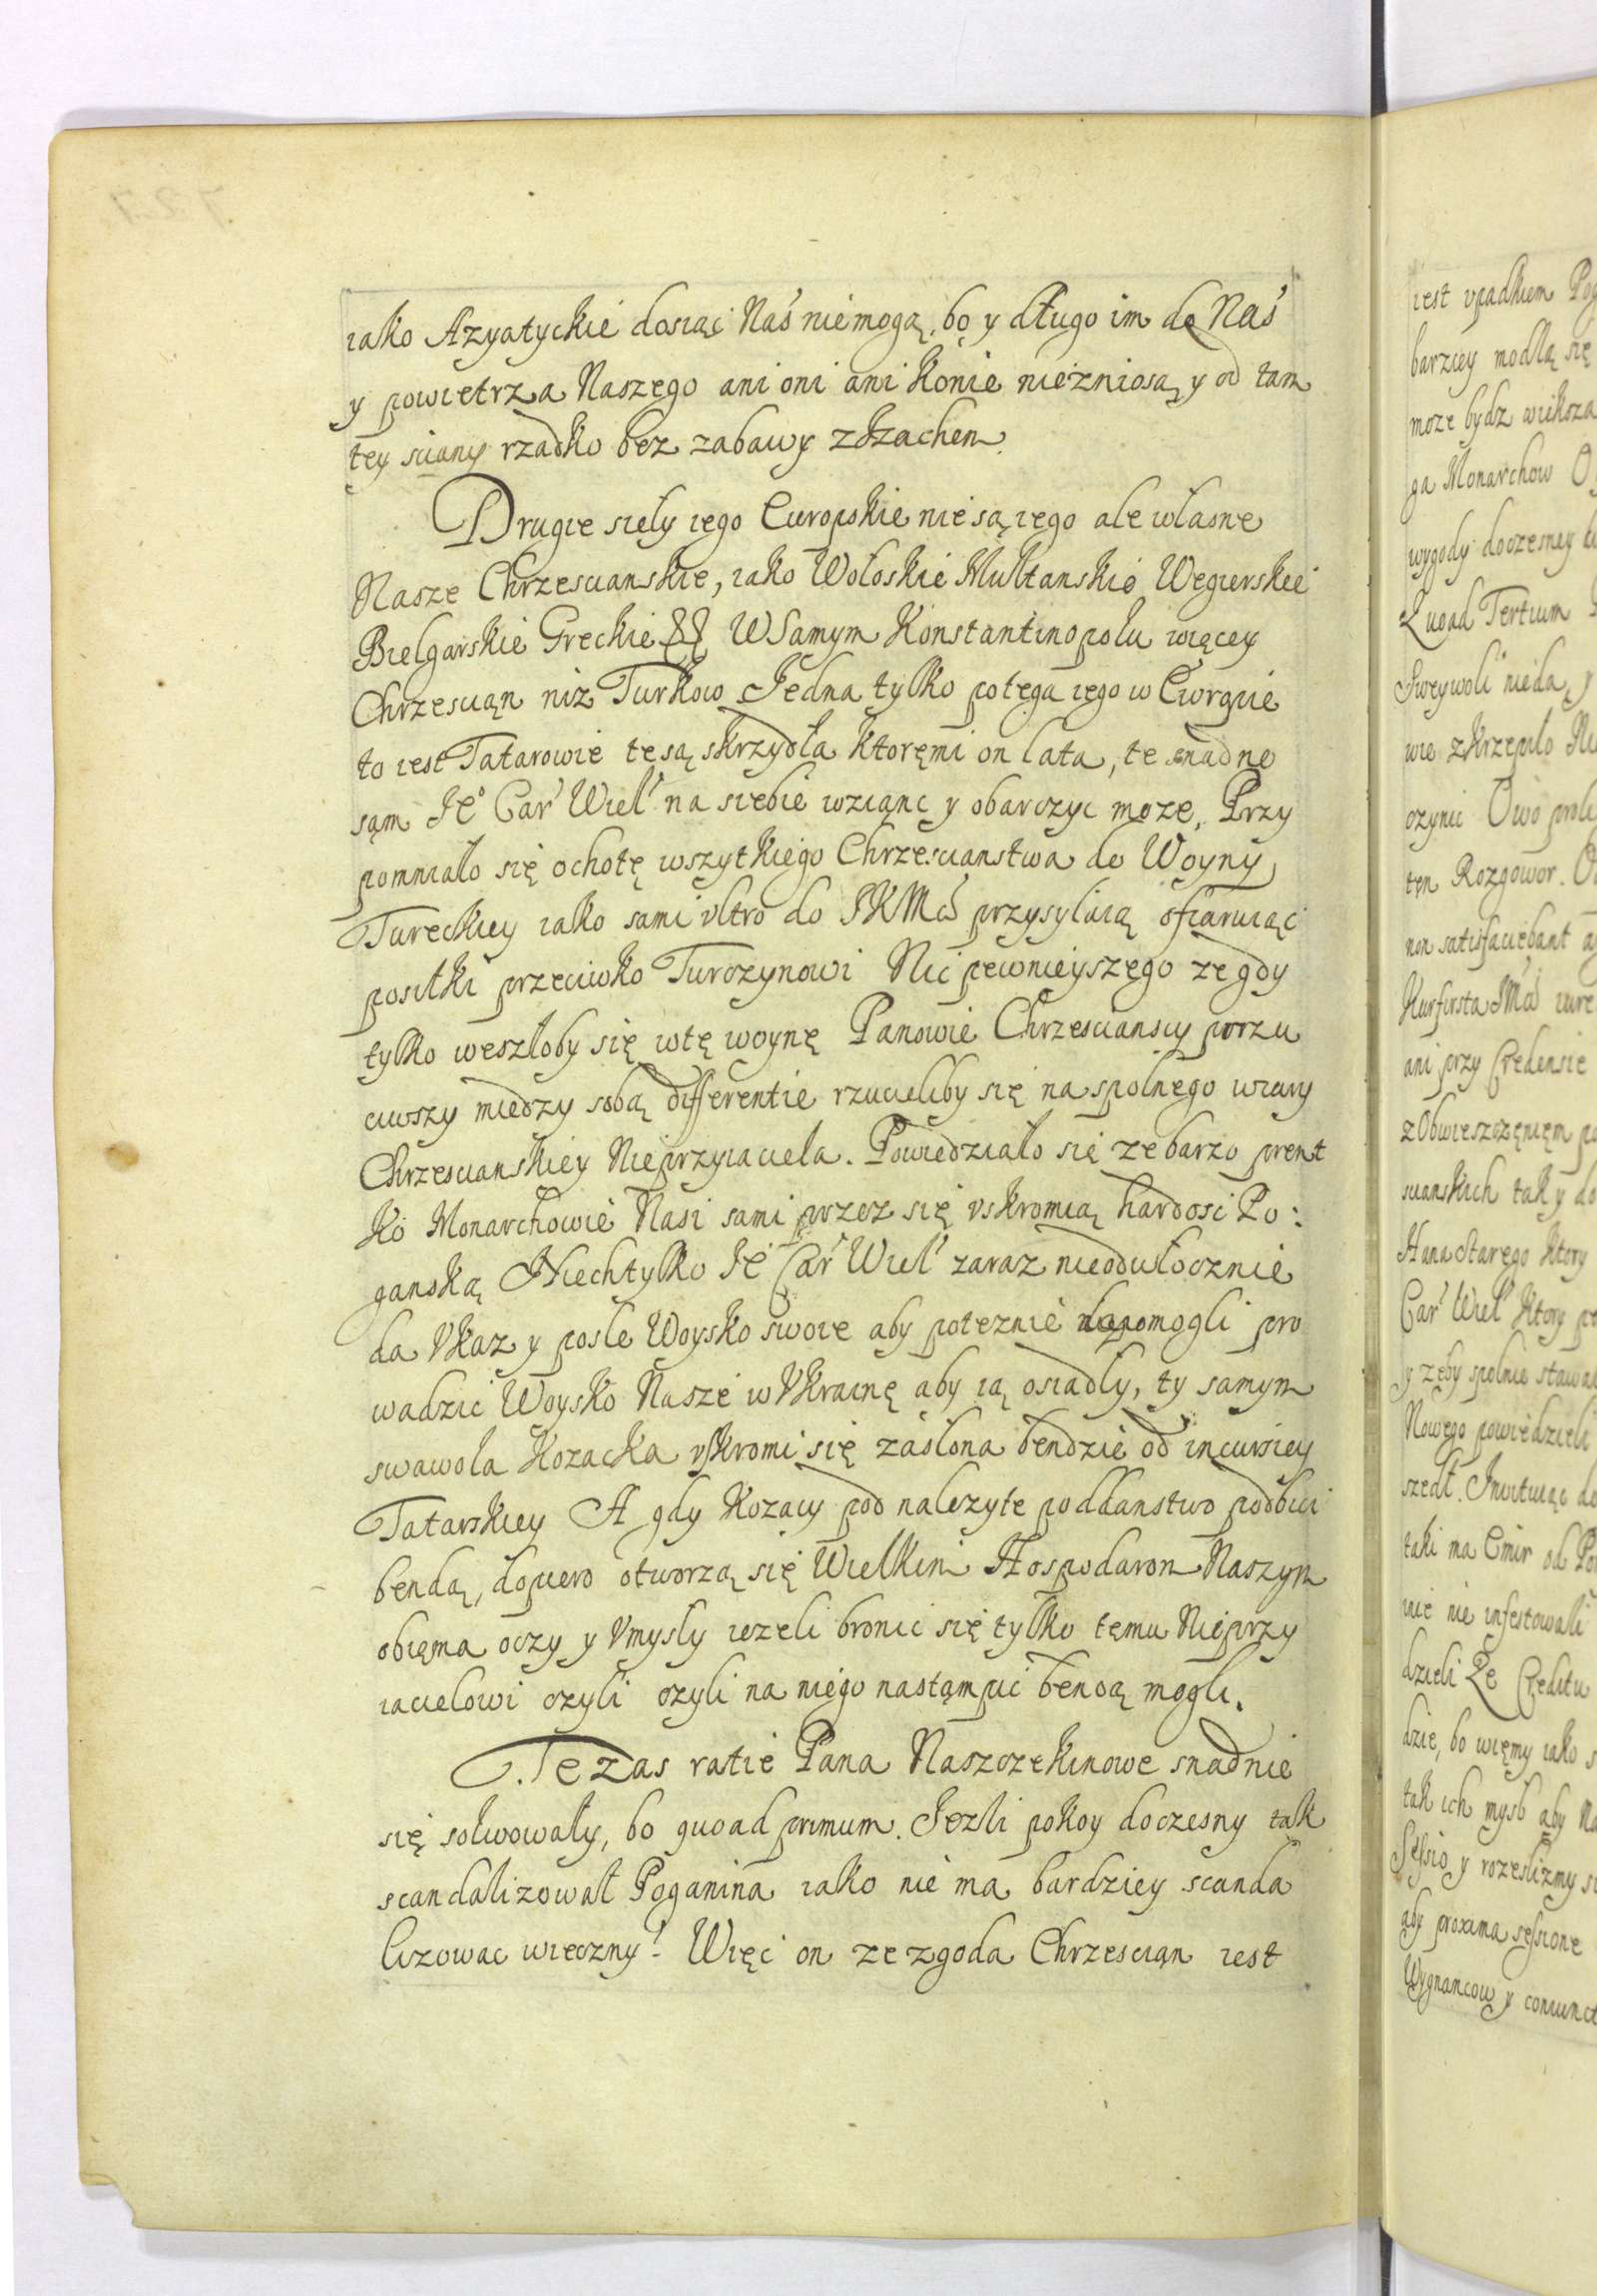 iako Azyatyckie dosiąc Nas niemogą, bo y długo im do Nas
y powietrza Naszego ani oni ani Konie niezniosą, y od tam
tey sciany rzadko bez zabawy z Szachem.
Drugie sieły iego Europskie nie są iego ale własne
Nasze Chrzescianskie, iako Wołoskie Multanskie Wegierskie
Bielgarskie Greckie W Samym Konstantinopolu więcey
Chrzescian niz Turkow Jedna tylko potęga iego w Europie
to iest Tatarowie te są skrzydła ktoremi on lata, te snadno
sąm Je° Car Wiel na siebie wziąnc y obarczyc moze, Przy
pomniało się ochotę wszytkiego Chrzescianstwa do Woyny
Tureckiey iako sami vltro do JKMci przysyłaią ofiaruiąc
posiłki przeciwko Turczynowi Nic pewnieyszego ze gdy
tylko weszłoby się w tę woynę Panowie Chrzescianscy porzu
ciwszy miedzy sobą differentie rzucieliby się na spolnego wiary
Chrzescianskiey Nieprzyiaciela. Powiedziało się ze barzo pręnt
ko Monarchowie Nasi sami przez się vskromią hardosc Po:
ganską Niech tylko Je° Car Wiel zaraz nieodwłocznie
da Vkaz y posle Woysko swoie aby poteznie dopomogli pro
wadzic Woysko Nasze w Vkrainę aby ią osiadły, ty samym
swawola Kozacka vskromi się zasłona bendzie od incursiey
Tatarskiey A gdy Kozacy pod nalezyte poddanstwo podbici
bendą, dopiero otworzą się Wielkim Hospodarom Naszym
obięma oczy y Vmysły iezeli bronic się tylko temu Nieprzy
iacielowi czyli czyli na niego nastąmpic bendą mogli.
Te zas ratie Pana Naszczekinowe snadnie
się solwowały, bo quoad primum. Jezli pokoy doczesny tak
scandalizował Poganina iako nie ma bardziey scanda
lizowac wieczny? Więc on ze zgoda Chrzescian iest
iest vpadkiem
barziey modlą się
moze bydz wiksza
ga Monarchow
wygody doczesney
Quoad Tertium
Swey woli nieda, y
wie zkrzepiło
czynic Owo
ten Rozgowor.
non satisfaciebant
Kurfirsta JMci
ani przy Credensie
z Obwieszczęnięm
scianskich tak y do
Hana Starego ktory
Car Wiel ktory
y zęby spolnie
Nowego powiedzieli
szedł. Inwituiąc do
taki ma Emir od
nie nie infestowali
dzieli Ze Creditu
dzie, bo więmy iako
tak ich mysb aby
Sessio y rozeslizmy
aby proxima sessione
Wygnancow y